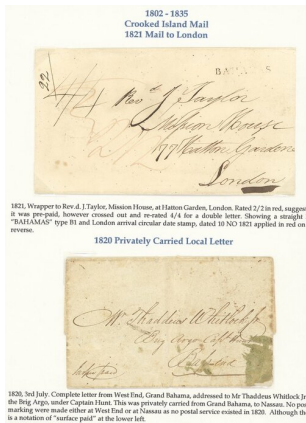 1802 - 1835
Crooked Island Mail
1821 Mail to London
22
4/4
BAHAMAS
Revd J. Taylor
Mission House
77 Hatton Garden
London
1821, Wrapper to Rev.d. J.Taylor, Mission House, at Hatton Garden, London. Rated 2/2 in red, sugges
it was pre-paid, however crossed out and re-rated 4/4 for a double letter. Showing a straight
"BAHAMAS" type B1 and London arrival circular date stamp, dated 10 NO 1821 applied in red on
reverse.
1820 Privately Carried Local Letter
Mr. Thaddeus Whitlock jr
Brig Argo Capt Hunt
1820, 3rd July. Complete letter from West End, Grand Bahama, addressed to Mr Thaddeus Whitlock Jr
the Brig Argo, under Captain Hunt. This was privately carried from Grand Bahama, to Nassau. No pos
marking were made either at West End or at Nassau as no postal service existed in 1820. Although the
is a notation of "surface paid" at the lower left.